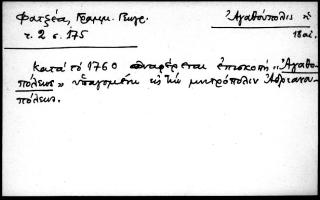 Φατζέα, Γραμμ. Γεωγρ. Ἀγαθούπολις ἡ
τ. 2 σ. 175 18 αἰ.
Κατὰ τὸ 1760 ἀναφέρεται ἐπισκοπὴ "Ἀγαθο-
πόλεως" ὑπαγομένη εἰς τὴν μητρόπολιν Ἀδριανου-
πόλεως.